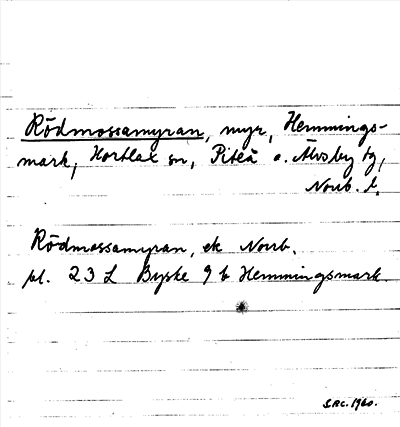 Rödmossamyran, myr, Hemmings-
mark, Hortlax sn, Piteå o. Älvsby tg,
Norrb. l.
Rödmossamyran, ek Norrb.
bl. 23 L Byske 9 b Hemmingsmark.
1960.